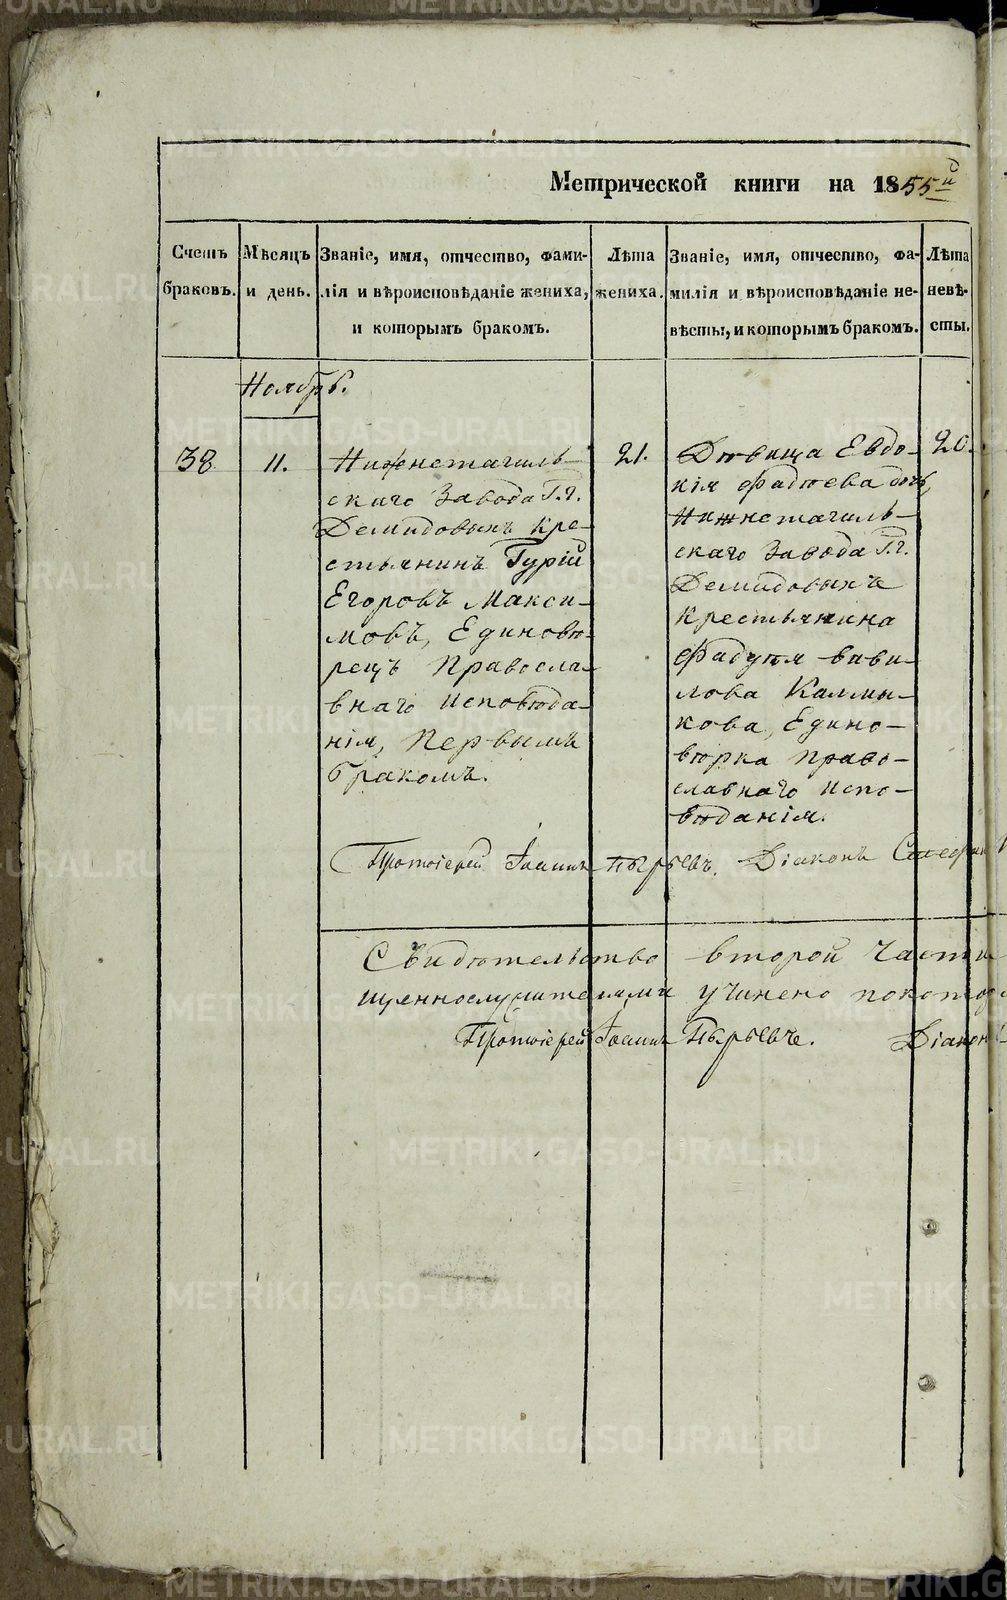 Метрической книги на 1855й
Счетъ браковъ.
Мѣсяцъ и день.
Званіе, имя, отчество, фами-
лія и вѣроисповѣданіе жениха,
и которымъ бракомъ.
Лѣта жениха.
Званіе, имя, отчество, фа-
милія и вѣроисповѣданіе не-
вѣсты, и которымъ бракомъ.
Лѣта невѣ-
сты.
Ноябрь.
38
11.
Нижнетагиль-
скаго Завода Г.г.
Демидовыхъ кре-
стьянинъ Гурій
Егоровъ Макси-
мовъ, Единовѣ-
рецъ Правосла-
внаго Исповѣда-
нія, Первымъ
бракомъ.
21.
Дѣвица Евдо-
кія Фадѣева дочь,
Нижнетагиль-
скаго Завода Г.г.
Демидовыхъ
Крестьянина
Фадѣя Вави-
лова Калмы-
кова, Едино-
вѣрка Право-
славнаго Испо-
вѣданія.
20.
Протоіерей Іоаннъ Пырьевъ. Діаконъ
Свидѣтельство второй части
щеннослужителями учинено
Протоіерей Іоаннъ Пырьевъ. Діаконъ
METRIKI.GASO-URAL.RU